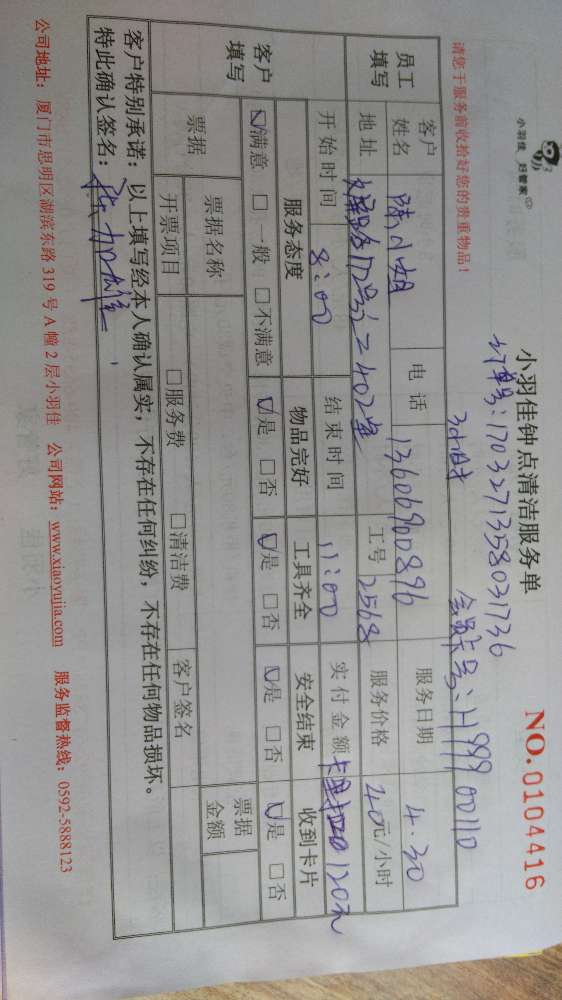 小羽佳 好管家
小羽佳钟点清洁服务单
NO.0104416
订单号:1703271358031736
请您于服务前收拾好您的贵重物品!
3小时 会员卡号:H199900110
员工填写
客户姓名 陈小姐 电话 13606900896 服务日期 4.30
地址 402室 工号 2568 服务价格 40元/小时
开始时间 8:00 结束时间 11:00 实付金额 120元
客户填写
服务态度 物品完好 工具齐全 安全结束 收到卡片
☑满意 □一般 □不满意 ☑是 □否 ☑是 □否 ☑是 □否 ☑是 □否
票据 票据名称 票据金额
开票项目 □服务费 □清洁费 客户签名
客户特别承诺:以上填写经本人确认属实,不存在任何纠纷,不存在任何物品损坏。
特此确认签名:
公司地址:厦门市思明区湖滨东路 319 号 A 幢 2 层小羽佳 公司网站:www.xiaoyujia.com 服务监督热线:0592-5888123